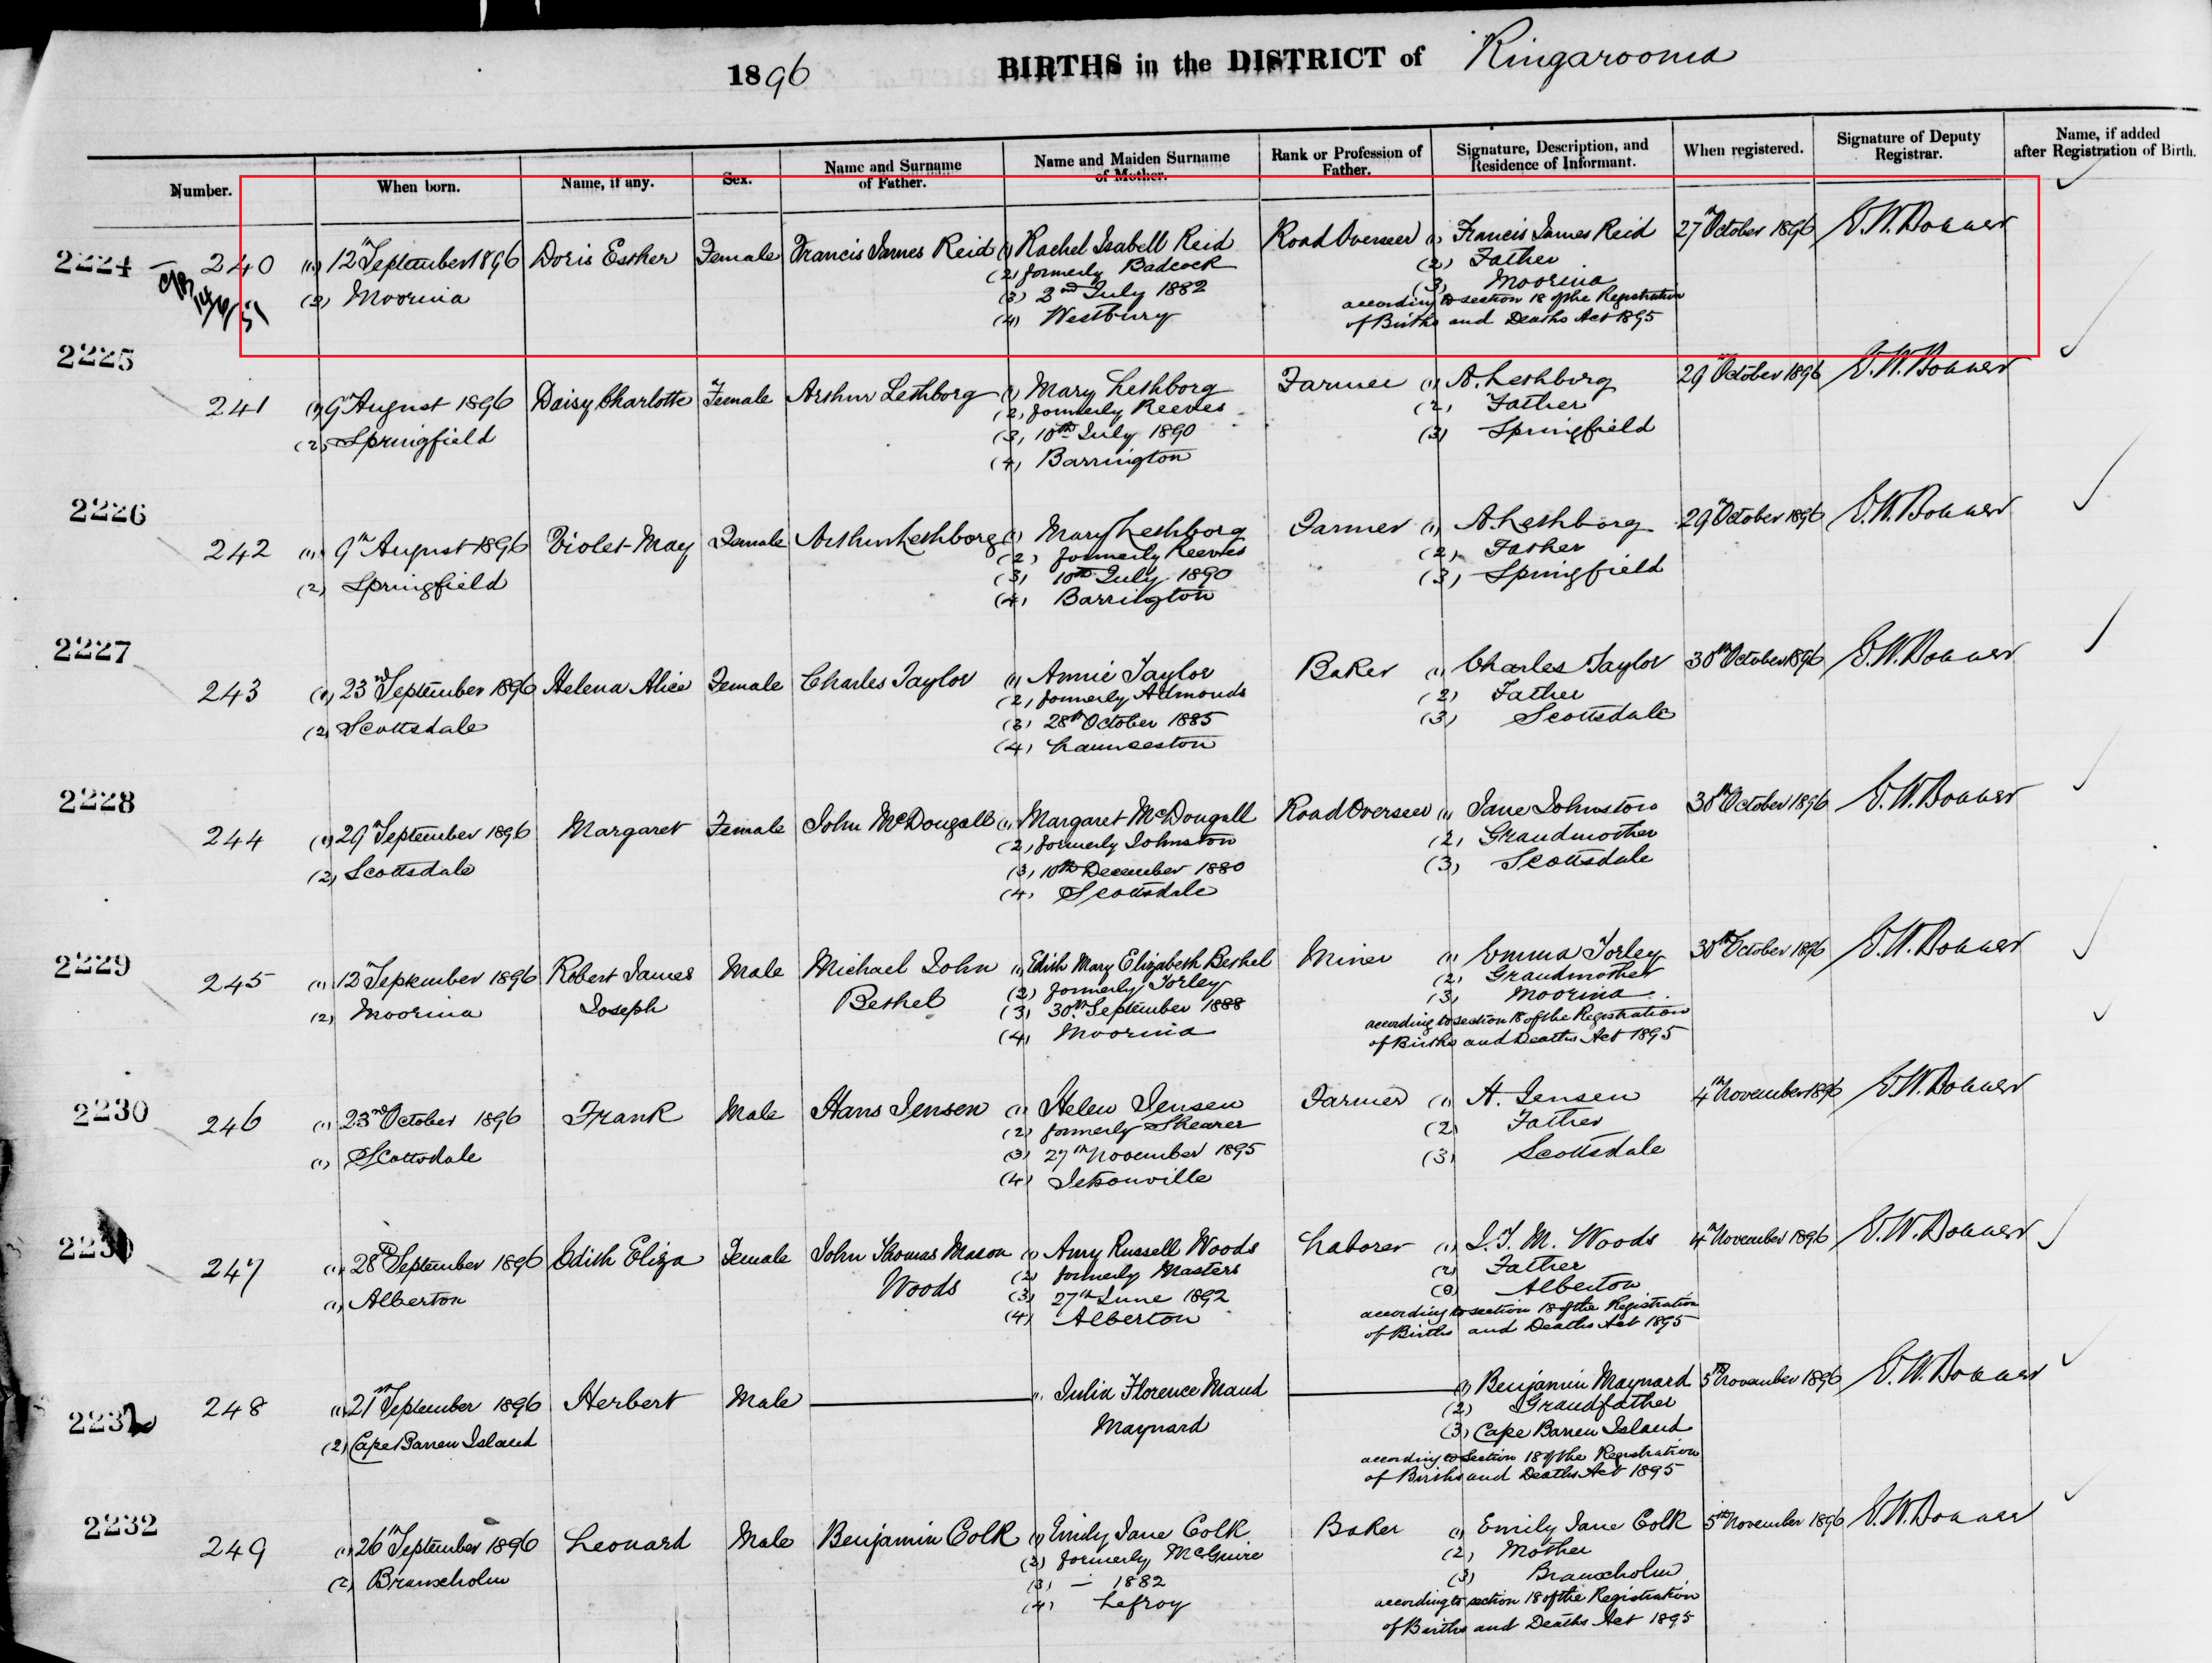 1896 BIRTHS in the DISTRICT of Ringarooma
Number. When born. Name, if any. Sex. Name and Surname of Father. Name and Maiden Surname of Mother. Rank or Profession of Father. Signature, Description, and Residence of Informant. When registered. Signature of Deputy Registrar. Name, if added after Registration of Birth.
2224 240 (1) 12th September 1896 Doris Esther Female Francis James Reid (1) Rachel Isabell Reid Road Overseer (1) Francis James Reid 27th October 1896
(2) Moorina (2) formerly Badcock (2) Father
(3) 2nd July 1882 (3) Moorina
(4) Westbury according to section 18 of the Registration
of Births and Deaths Act 1895
2225
241 (1) 9th August 1896 Daisy Charlotte Female Arthur Lethborg (1) Mary Lethborg Farmer (1) A. Lethborg 29th October 1896
(2) Springfield (2) formerly Reeves (2) Father
(3) 10th July 1890 (3) Springfield
(4) Barrington
2226
242 (1) 9th August 1896 Violet May Female Arthur Lethborg (1) Mary Lethborg Farmer (1) A. Lethborg 29th October 1896
(2) Springfield (2) formerly Reeves (2) Father
(3) 10th July 1890 (3) Springfield
(4) Barrington
2227
243 (1) 23rd September 1896 Helena Alice Female Charles Taylor (1) Annie Taylor Baker (1) Charles Taylor 30th October 1896
(2) Scottsdale (2) formerly Admonds (2) Father
(3) 28th October 1885 (3) Scottsdale
(4) Launceston
2228
244 (1) 29th September 1896 Margaret Female John McDougall (1) Margaret McDougall Road Overseer (1) Jane Johnston 30th October 1896
(2) Scottsdale (2) formerly Johnston (2) Grandmother
(3) 10th December 1880 (3) Scottsdale
(4) Scottsdale
2229
245 (1) 12th September 1896 Robert James Joseph Male Michael John Bethel (1) Edith Mary Elizabeth Bethel Miner (1) Emma Torley 30th October 1896
(2) Moorina (2) formerly Torley (2) Grandmother
(3) 30th September 1888 (3) Moorina
(4) Moorina according to section 18 of the Registration
of Births and Deaths Act 1895
2230
246 (1) 23rd October 1896 Frank Male Hans Jensen (1) Helen Jensen Farmer (1) H. Jensen 4th November 1896
(1) Scottsdale (2) formerly Shearer (2) Father
(3) 27th November 1895 (3) Scottsdale
(4) Jetsonville
247 (1) 28th September 1896 Edith Eliza Female John Thomas Mason Woods (1) Amy Russell Woods Laborer (1) J. T. M. Woods 4th November 1896
(1) Alberton (2) formerly Masters (2) Father
(3) 27th June 1892 (3) Alberton
(4) Alberton according to section 18 of the Registration
of Births and Deaths Act 1895
2232 248 (1) 21st September 1896 Herbert Male (1) Julia Florence Maud Maynard (1) Benjamin Maynard 5th November 1896
(2) Cape Barren Island (2) Grandfather
(3) Cape Barren Island
according to section 18 of the Registration
of Births and Deaths Act 1895
2232
249 (1) 26th September 1896 Leonard Male Benjamin Colk (1) Emily Jane Colk Baker (1) Emily Jane Colk 5th November 1896
(2) Branxholm (2) formerly McGuire (2) Mother
(3) — 1882 (3) Branxholm
(4) Lefroy according to section 18 of the Registration
of Births and Deaths Act 1895